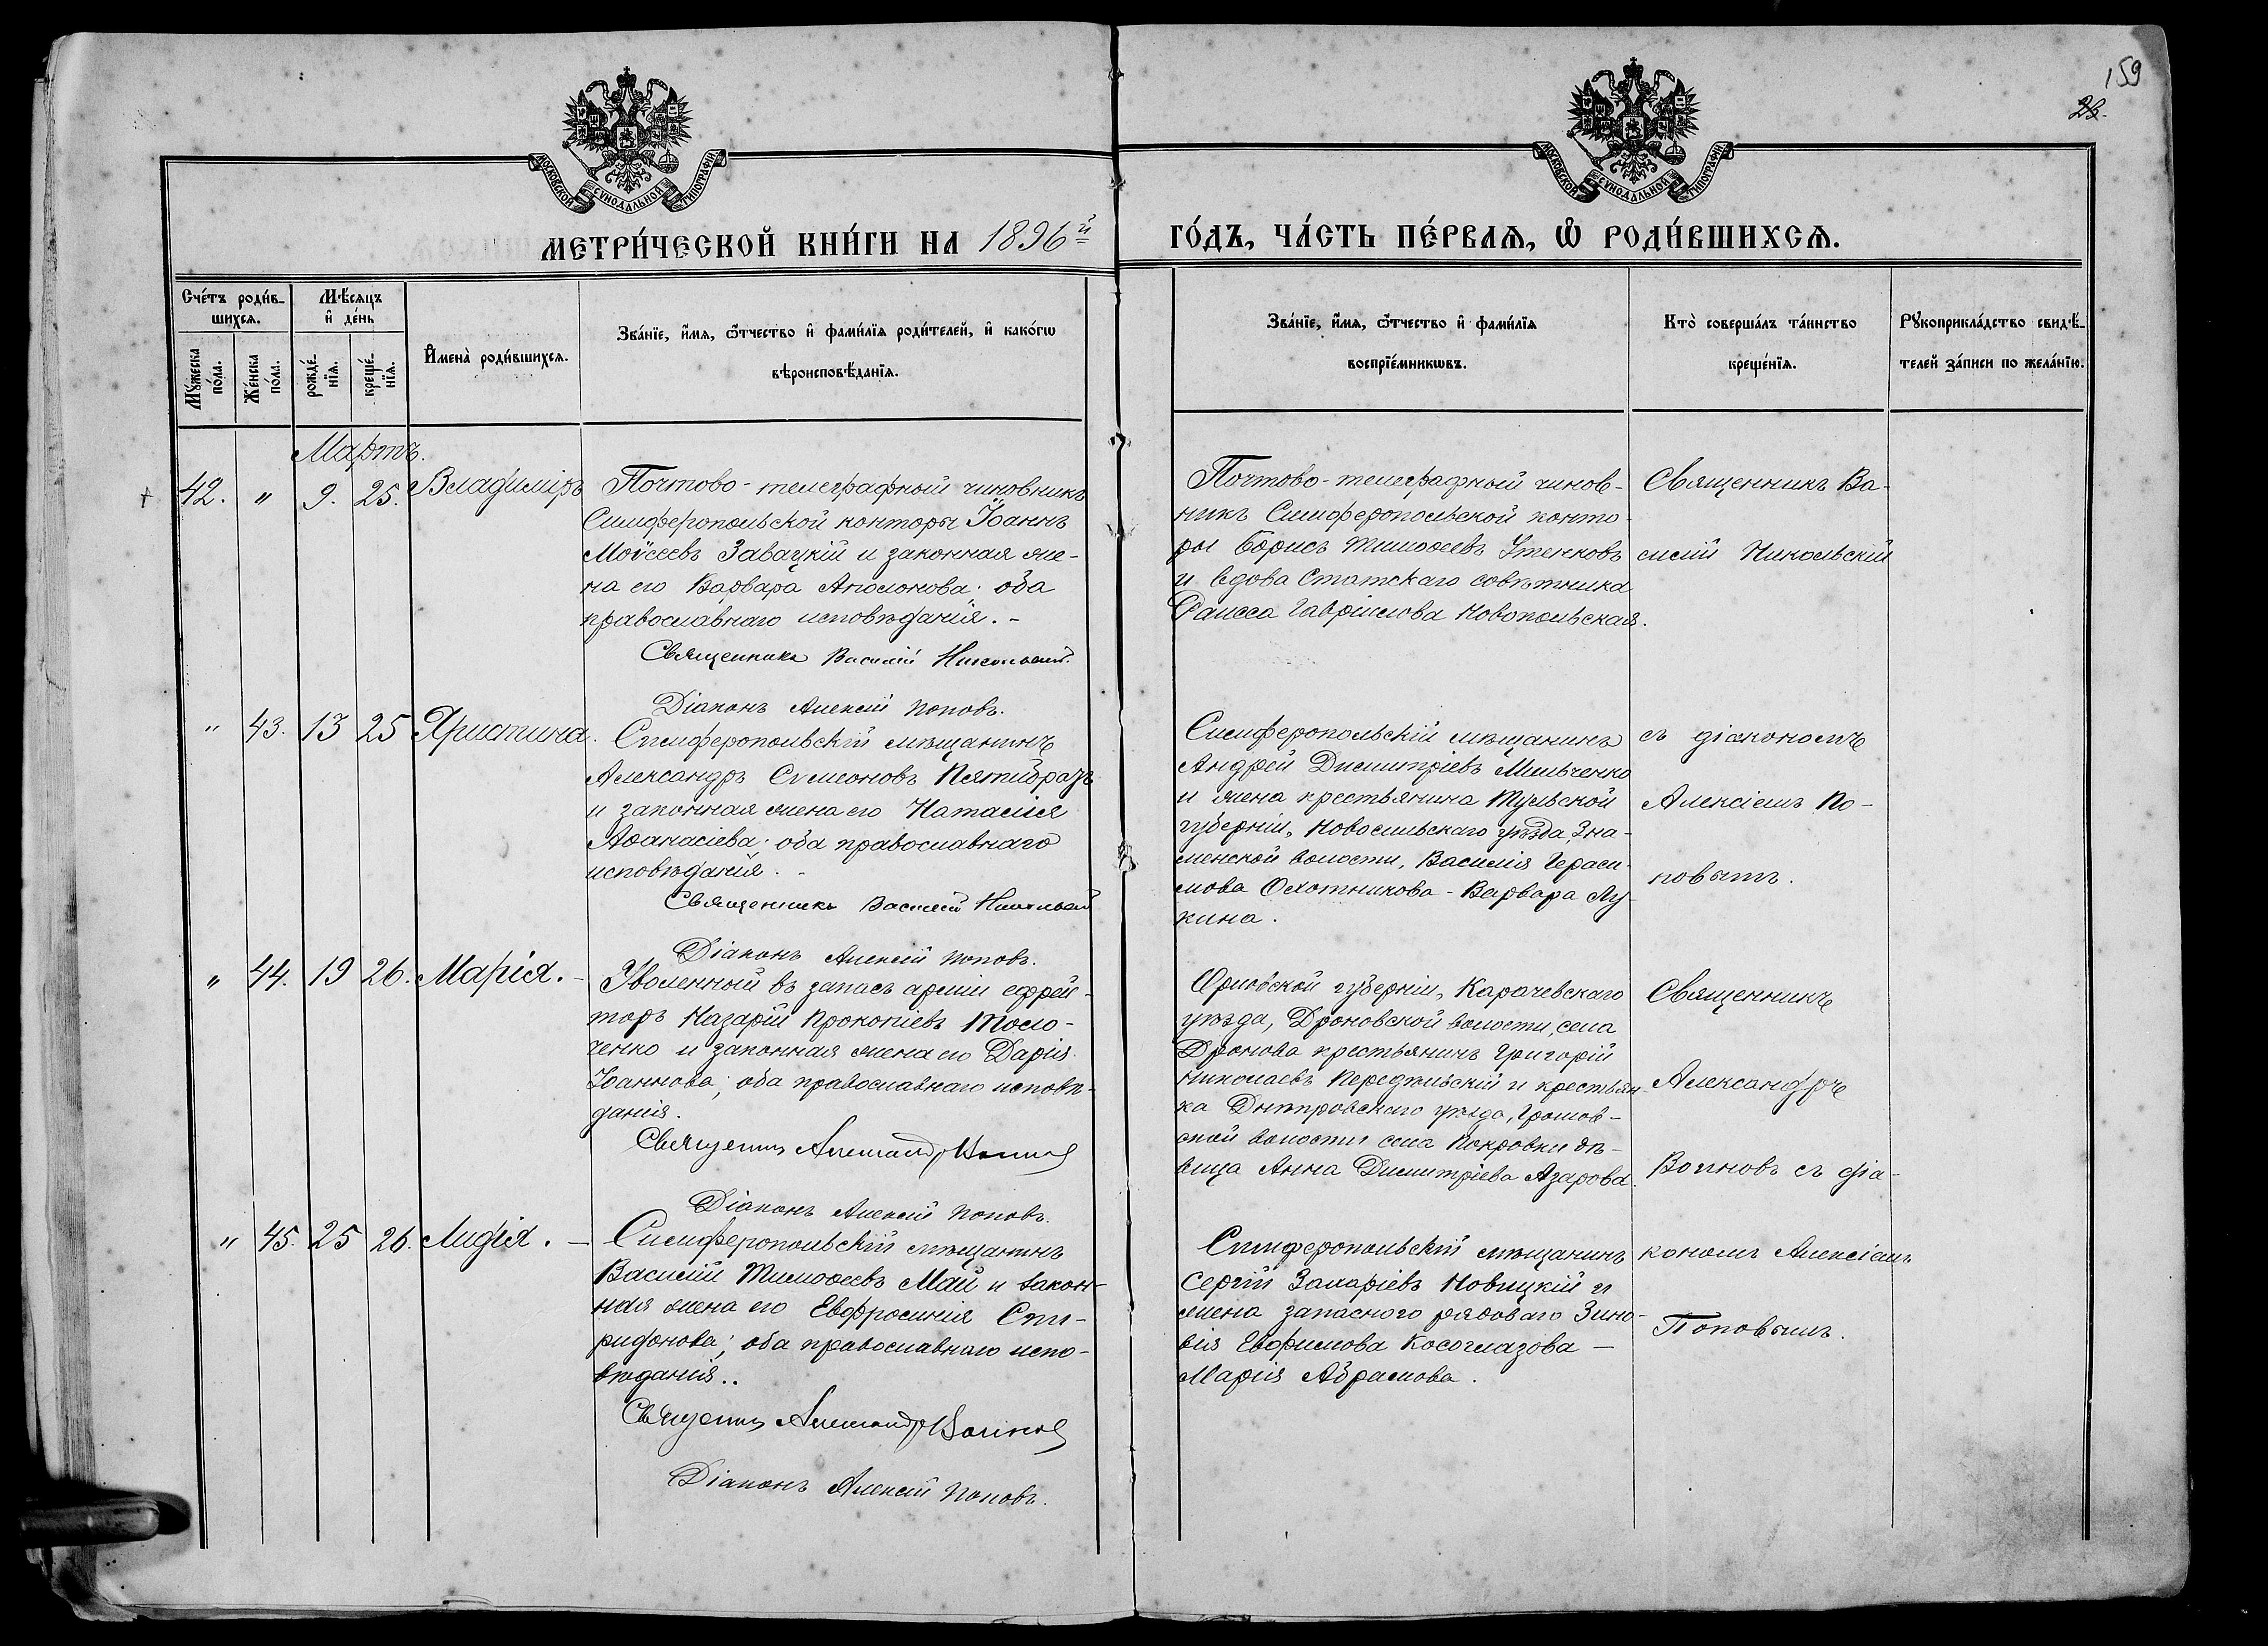 159
23.
МОСКОВСКОЙ СѴНОДАЛЬНОЙ ТИПОГРАФІИ.
МОСКОВСКОЙ СѴНОДАЛЬНОЙ ТИПОГРАФІИ.
МЕТРИ́ЧЕСКОЙ КНИ́ГИ НА 1896й
ГО́ДЪ, ЧА́СТЬ ПЕ́РВАѦ, Ѡ҆ РОДИ́ВШИХСѦ.
Сче́тъ роди́в-
шихсѧ.
Мѣ́сѧцъ
и҆ де́нь
Мꙋ́жеска
по́ла.
Же́нска
по́ла.
рожде́-
нїѧ.
креще́-
нїѧ.
И҆мена̀ роди́вшихсѧ.
Зва́нїе, и҆́мѧ, ѻ҆́тчество и҆ фами́лїѧ роди́телей, и҆ како́гѡ
вѣроисповѣ́данїѧ.
Зва́нїе, и҆́мѧ, ѻ҆́тчество и҆ фами́лїѧ
воспрїе́мникѡвъ.
Кто̀ соверша́лъ та́инство
креще́нїѧ.
Рꙋкоприкла́дство свидѣ́-
телей за́писи по жела́нїю.
Мартъ.
42. " 9. 25. Владиміръ
Почтово-телеграфный чиновникъ
Симферопольской конторы Іоаннъ
Моѵсеевъ Завацкій и законная же-
на его Варвара Аполонова: оба
православнаго исповѣданія. -
Священникъ Василій Никольскій.
Діаконъ Алексій Поповъ.
Почтово-телеграфный чинов-
никъ Симферопольской конто-
ры Борисъ Тимоѳеевъ Утенковъ
и вдова Статскаго совѣтника
Раисса Гавріилова Новопольская.
Священникъ Ва-
силій Никольскій
" 43. 13 25 Христина.
Симферопольскій мѣщанинъ
Александръ Сѵмеоновъ Пятибратъ
и законная жена его Наталія
Аѳанасіева: оба православнаго
исповѣданія. -
Священникъ Василій Никольскій
Діаконъ Алексій Поповъ.
Симферопольскій мѣщанинъ
Андрей Димитріевъ Мильченко
и жена крестьянина Тульской
губерніи, Новосильскаго уѣзда, Зна-
менской волости, Василія Гераси-
мова Охотникова - Варвара Лу-
кина.
съ діакономъ
Алексіемъ По-
повымъ.
" 44. 19 26. Марія. -
Уволенный въ запасъ арміи ефрей-
торъ Назарій Прокопіевъ Толо-
ченко и законная жена его Дарія
Іоаннова; оба православнаго исповѣ-
данія.
Священникъ Александръ Воиновъ
Діаконъ Алексій Поповъ.
Орловской губерніи, Карачевскаго
уѣзда, Дроновской волости, села
Дронова крестьянинъ Григорій
Николаевъ и крестьян-
ка Днѣпровскаго уѣзда,
волости села Покровки дѣ-
вица Анна Димитріева Азарова.
Священникъ
Александръ
Воиновъ съ діа-
кономъ Алексіемъ
Поповымъ.
" 45. 25 26. Лидія. -
Симферопольскій мѣщанинъ
Василій Тимоѳеевъ Май и закон-
ная жена его Евфросинія Спи-
ридонова; оба православнаго испо-
вѣданія..
Священникъ Александръ Воиновъ
Діаконъ Алексій Поповъ.
Симферопольскій мѣщанинъ
Сергій Захаріевъ Новицкій и
жена запаснаго рядоваго Зино-
вія Евфимова Косоглазова -
Марія Абрамова.